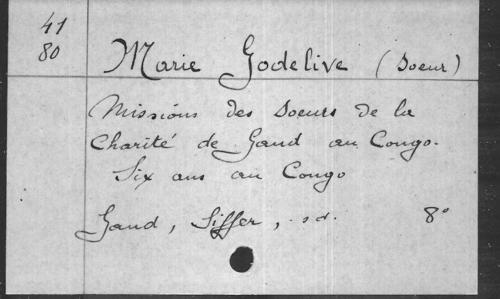 41
80
Marie Godelive (Soeur)
Missions des Soeurs de la
Charité de Gand au Congo.
Six ans au Congo
Gand, Siffer, s.d. 8°